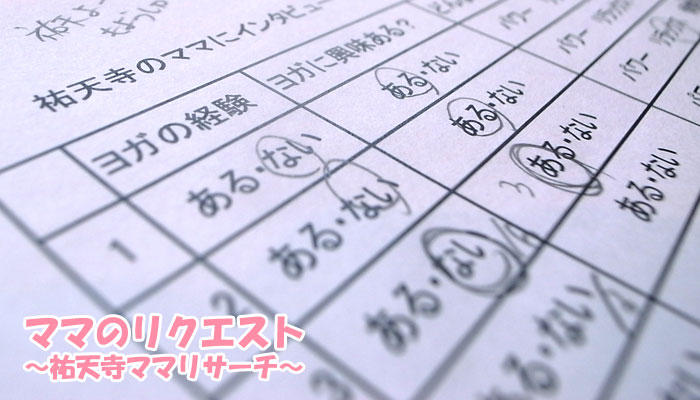 祐天寺のママにインタビュー
ヨガの経験 ヨガに興味ある?
パワー リラックス
パワー リラックス
1 ある・ない ある・ない パワー
2 ある・ない ある・ない
3 ある・ない 3 ある・ない
ある・ない ある・ない
ママのリクエスト
～祐天寺ママリサーチ～